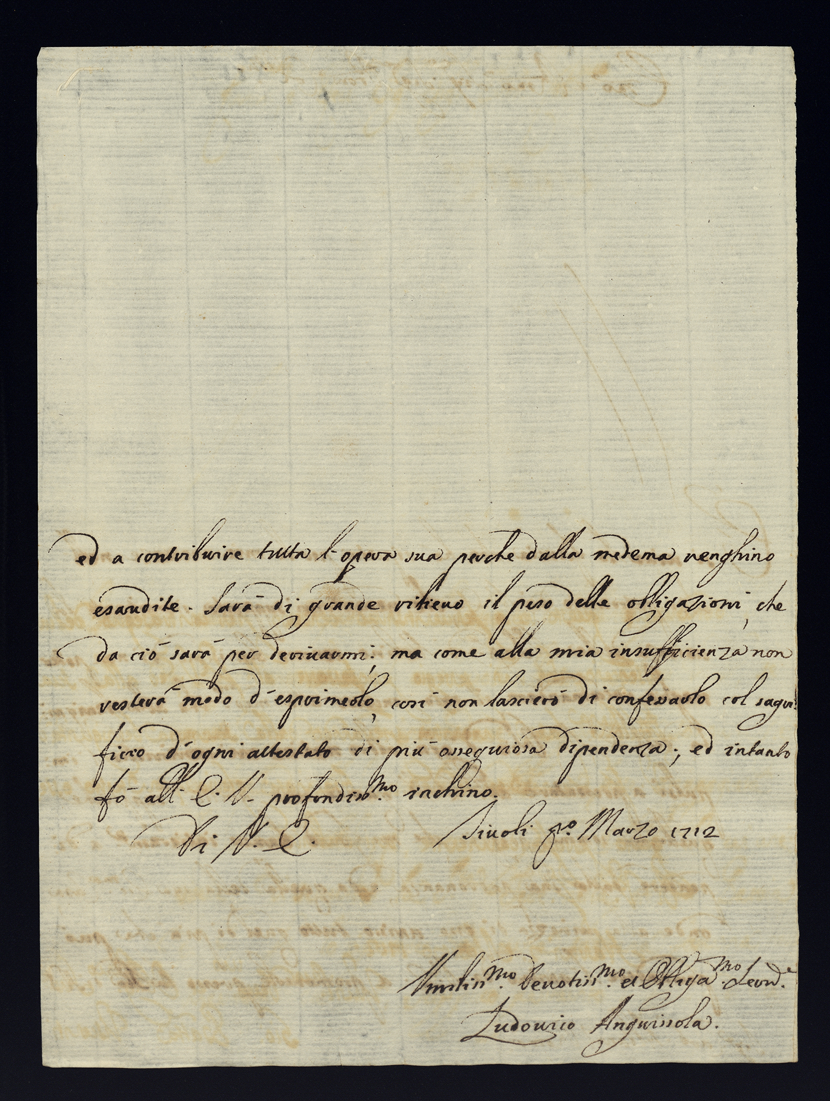 ed a contribuire tutta l'opera sua perche dalla medema venghino
esaudite. Sarà di grande rilievo il peso delle obligazioni, che
da ciò sarà per derivarmi; ma come alla mia insufficienza non
resterà modo d'esprimerlo, così non lascierò di confessarlo col sagri-
ficio d'ogni attestato di più ossequiosa dipendenza; ed intanto
fò all' E. V. profondiss.mo inchino.
Di V. E. Tivoli p.o Marzo 1712
Humiliss.mo Devotiss.mo et Obliga.mo Serv.e
Ludovico Anguissola.